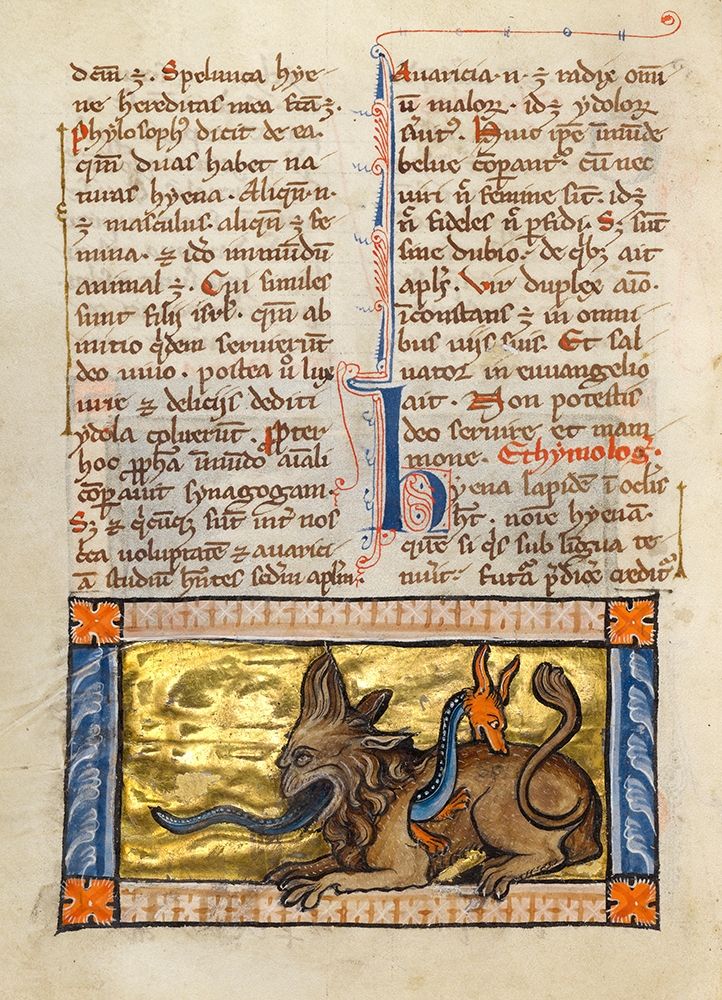 dictum est. Spelunca hye
ne hereditas mea facta est.
Phylosophus dicit de ea.
quoniam duas habet na
turas hyena. Aliquando enim
est masculus. aliquando est fe
mina. et ideo inmundum
animal est. Cui similes
sunt filii israel. quoniam ab
initio quidem servierunt
deo vivo. postea vero lux
urie et deliciis dediti
ydola coluerunt. Propter
hoc propheta inmundo animali
comparavit synagogam.
Sed et quicumque sunt inter nos
circa voluptatem et avarici
am studium habentes secundum apostolum
Avaricia enim est radix omni
um malorum. idest ydolorum
servitus. Huic ipse inmunde
belue comparantur. cum nec
viri nec femine sint. idest
nec fideles nec perfidi. Sed sunt
sine dubio. de quibus ait
apostolus. Vir duplex animo.
inconstans est in omni
bus viis suis. Et sal
vator in euuangelio
ait. Non potestis
deo servire et mam
mone. Ethymologia.
hyena lapidem in oculis
habet. nomine hyenam.
quem si quis sub lingua te
nuerit. futura predicere creditur.